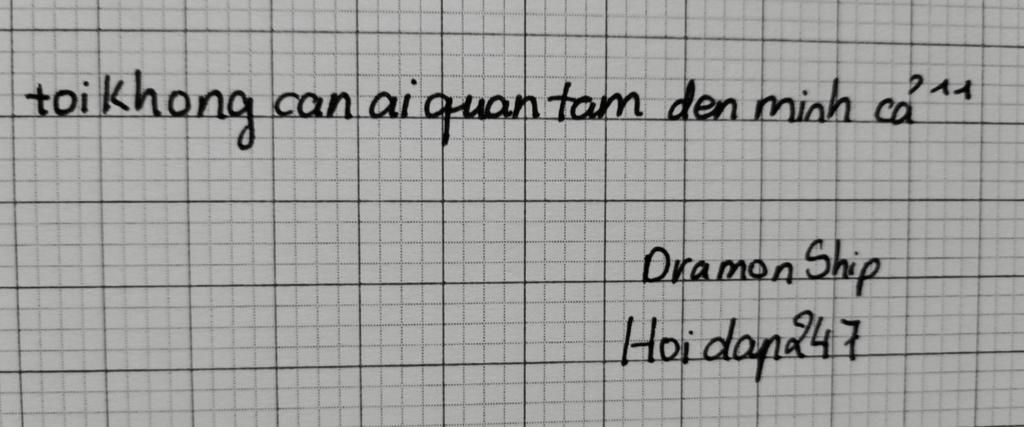 toi khong can ai quan tam den minh cả 11
Dramon Ship
Hoi dap 247